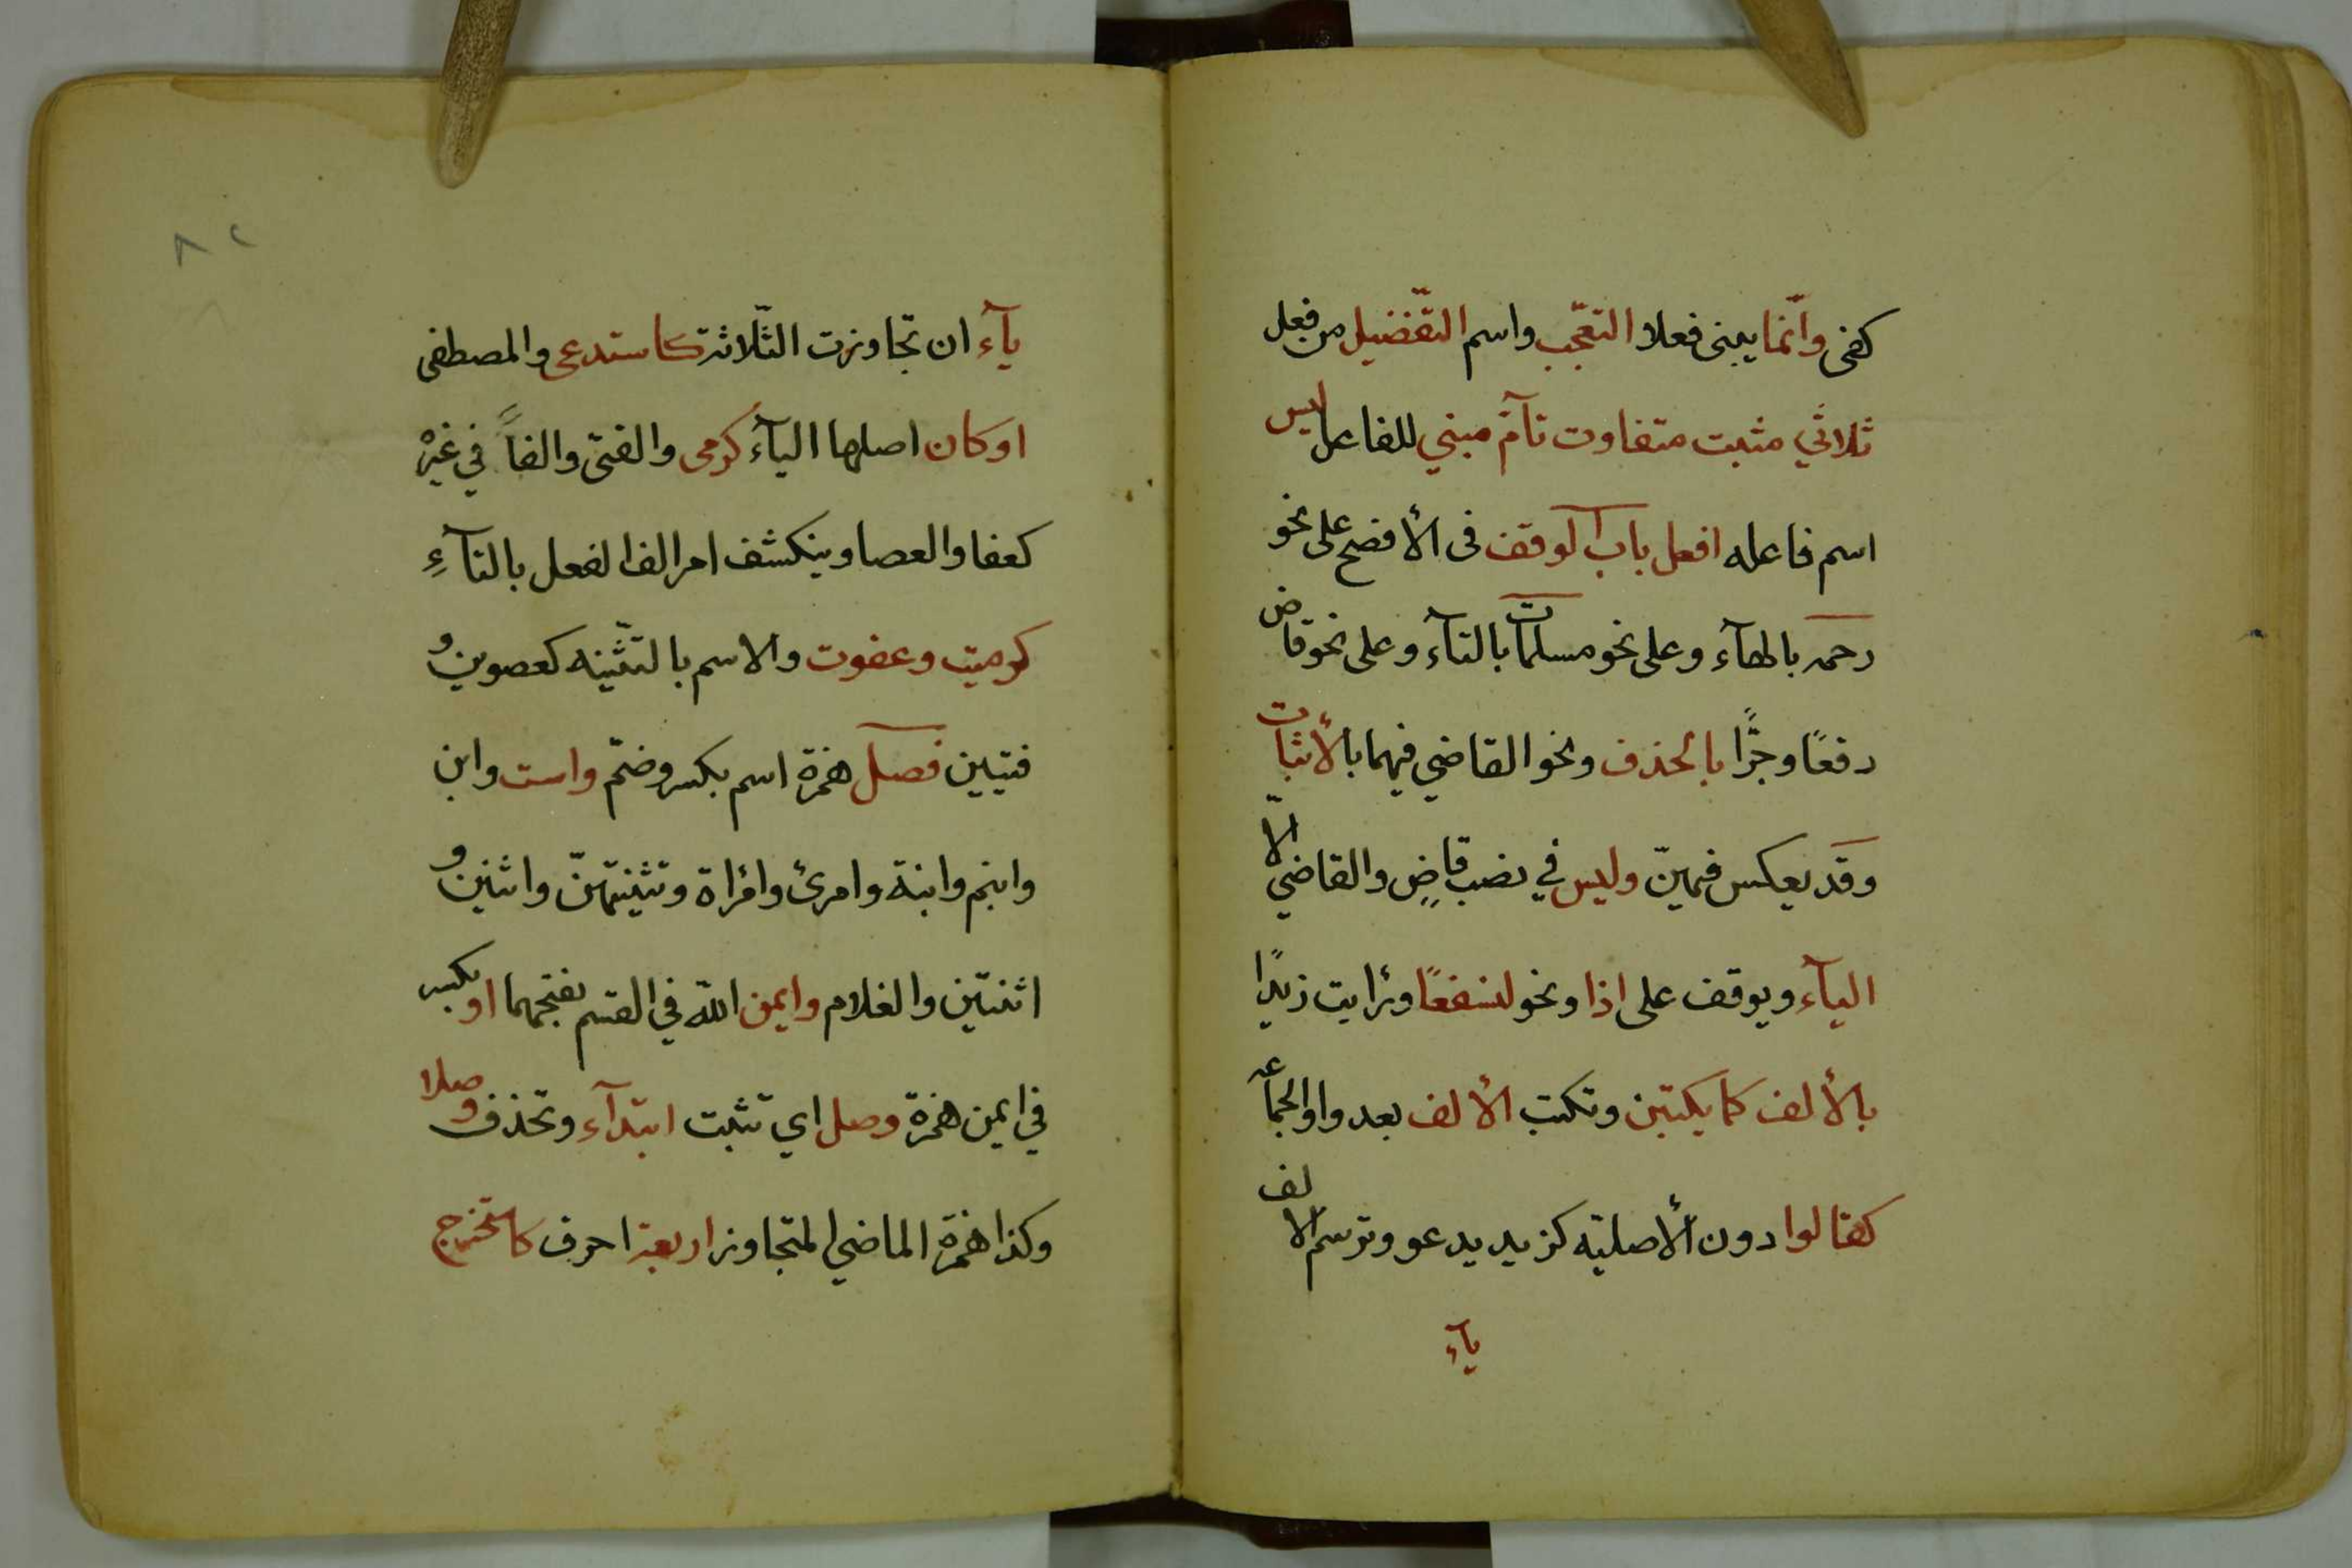 كفى وانّما يبنى فعلا التعجّب واسم التّفضيل من فعل
ثلاثي مثبت متفاوت تآمّ مبني للفاعل ليس
اسم فاعله افعل باب الوقف فى الأفصح على نحو
رحمه بالهآء وعلى نحو مسلمات بالتآء وعلى نحو قاض
رفعًا وجرًّا بالحذف ونحو القاضي فيهما بالأثبات
وقد يعكس فيهنّ وليس في نصب قاضٍ والقاضي الّا
اليآء ويوقف على اذا ونحو لنسفعًا ورايت زيدًا
بالألف كما يكتبن وتكتب الألف بعد واو الجماعه
كقالوا دون الأصليّه كزيد يدعو وترسم الالف
يآء
٨٢
يآء ان تجاوزت الثّلاثة كاستدعى والمصطفى
او كان اصلها اليآء كرمى والفتى والفاً في غيره
كعفا والعصا وينكشف امر الف الفعل بالتآءِ
كرميت وعفوت والاسم بالتثّنيه كعصوين و
فتيين فصل همزة اسم بكسر وضمّ واست وابن
وابنم وابنة وامرئ وامرأة وتثنيتهنّ واثنين و
اثنتين والغلام وايمن اللّه في القسم بفتحهما او بكسر
في ايمن همزة وصل اي تثبت ابتدآء وتحذف وصلا
وكذا همزة الماضي المتجاوز اربعة احرف كاستخرج